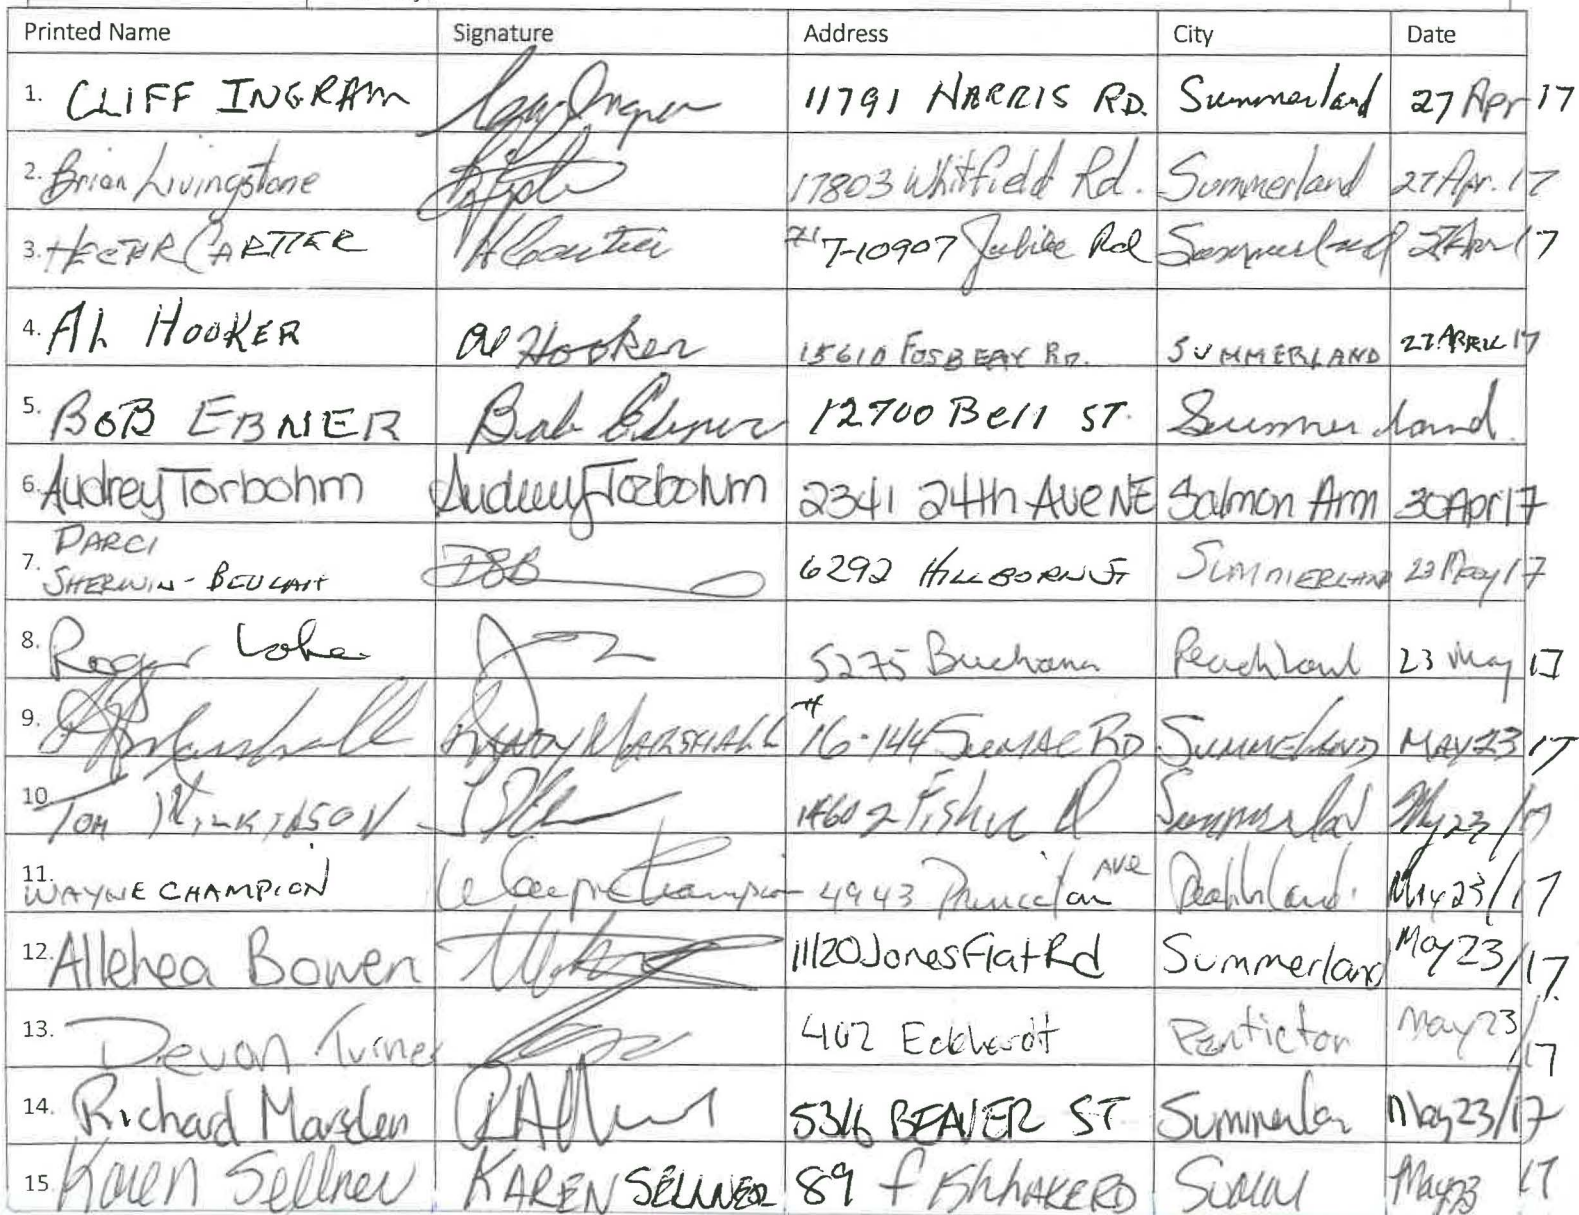 Printed Name Signature Address City Date
1. CLIFF INGRAM 11791 HARRIS RD. Summerland 27 Apr 17
2. Brian Livingstone 17803 Whitfield Rd. Summerland 27 Apr. 17
3. HECTOR CARTIER H Cartier 7-10907 Jubilee Rd Summerland 27 Apr 17
4. AL HOOKER Al Hooker 15610 FOSBERY RD. SUMMERLAND 27 APRIL 17
5. BOB EBNER Bob Ebner 12700 Bell ST. Summerland
6. Audrey Torbohm Audrey Torbohm 2341 24th Ave NE Salmon Arm 30 Apr 17
DARCI
7. SHERWIN - BEULAH DSB 6292 HILLBORN ST SUMMERLAND 23 May 17
8. Roger 5275 Buchanan Peachland 23 May 17
9. Marshall MARSHALL #16-144 SUMAC RD SUMMELAND MAY 23 17
10. TOM 14602 Fisher Summerland May 23/17
11. WAYNE CHAMPION Wayne Champion 4943 Princeton Ave Peachland May 23/17
12. Allehea Bowen 11120 Jones Flat Rd Summerland May 23/17
13. Devon Turner 402 Eckhardt Penticton May 23/17
14. Richard Marsden 5316 BEAVER ST Summerlan May 23/17
15. Karen Sellner KAREN SELLNER 89 May 23 17